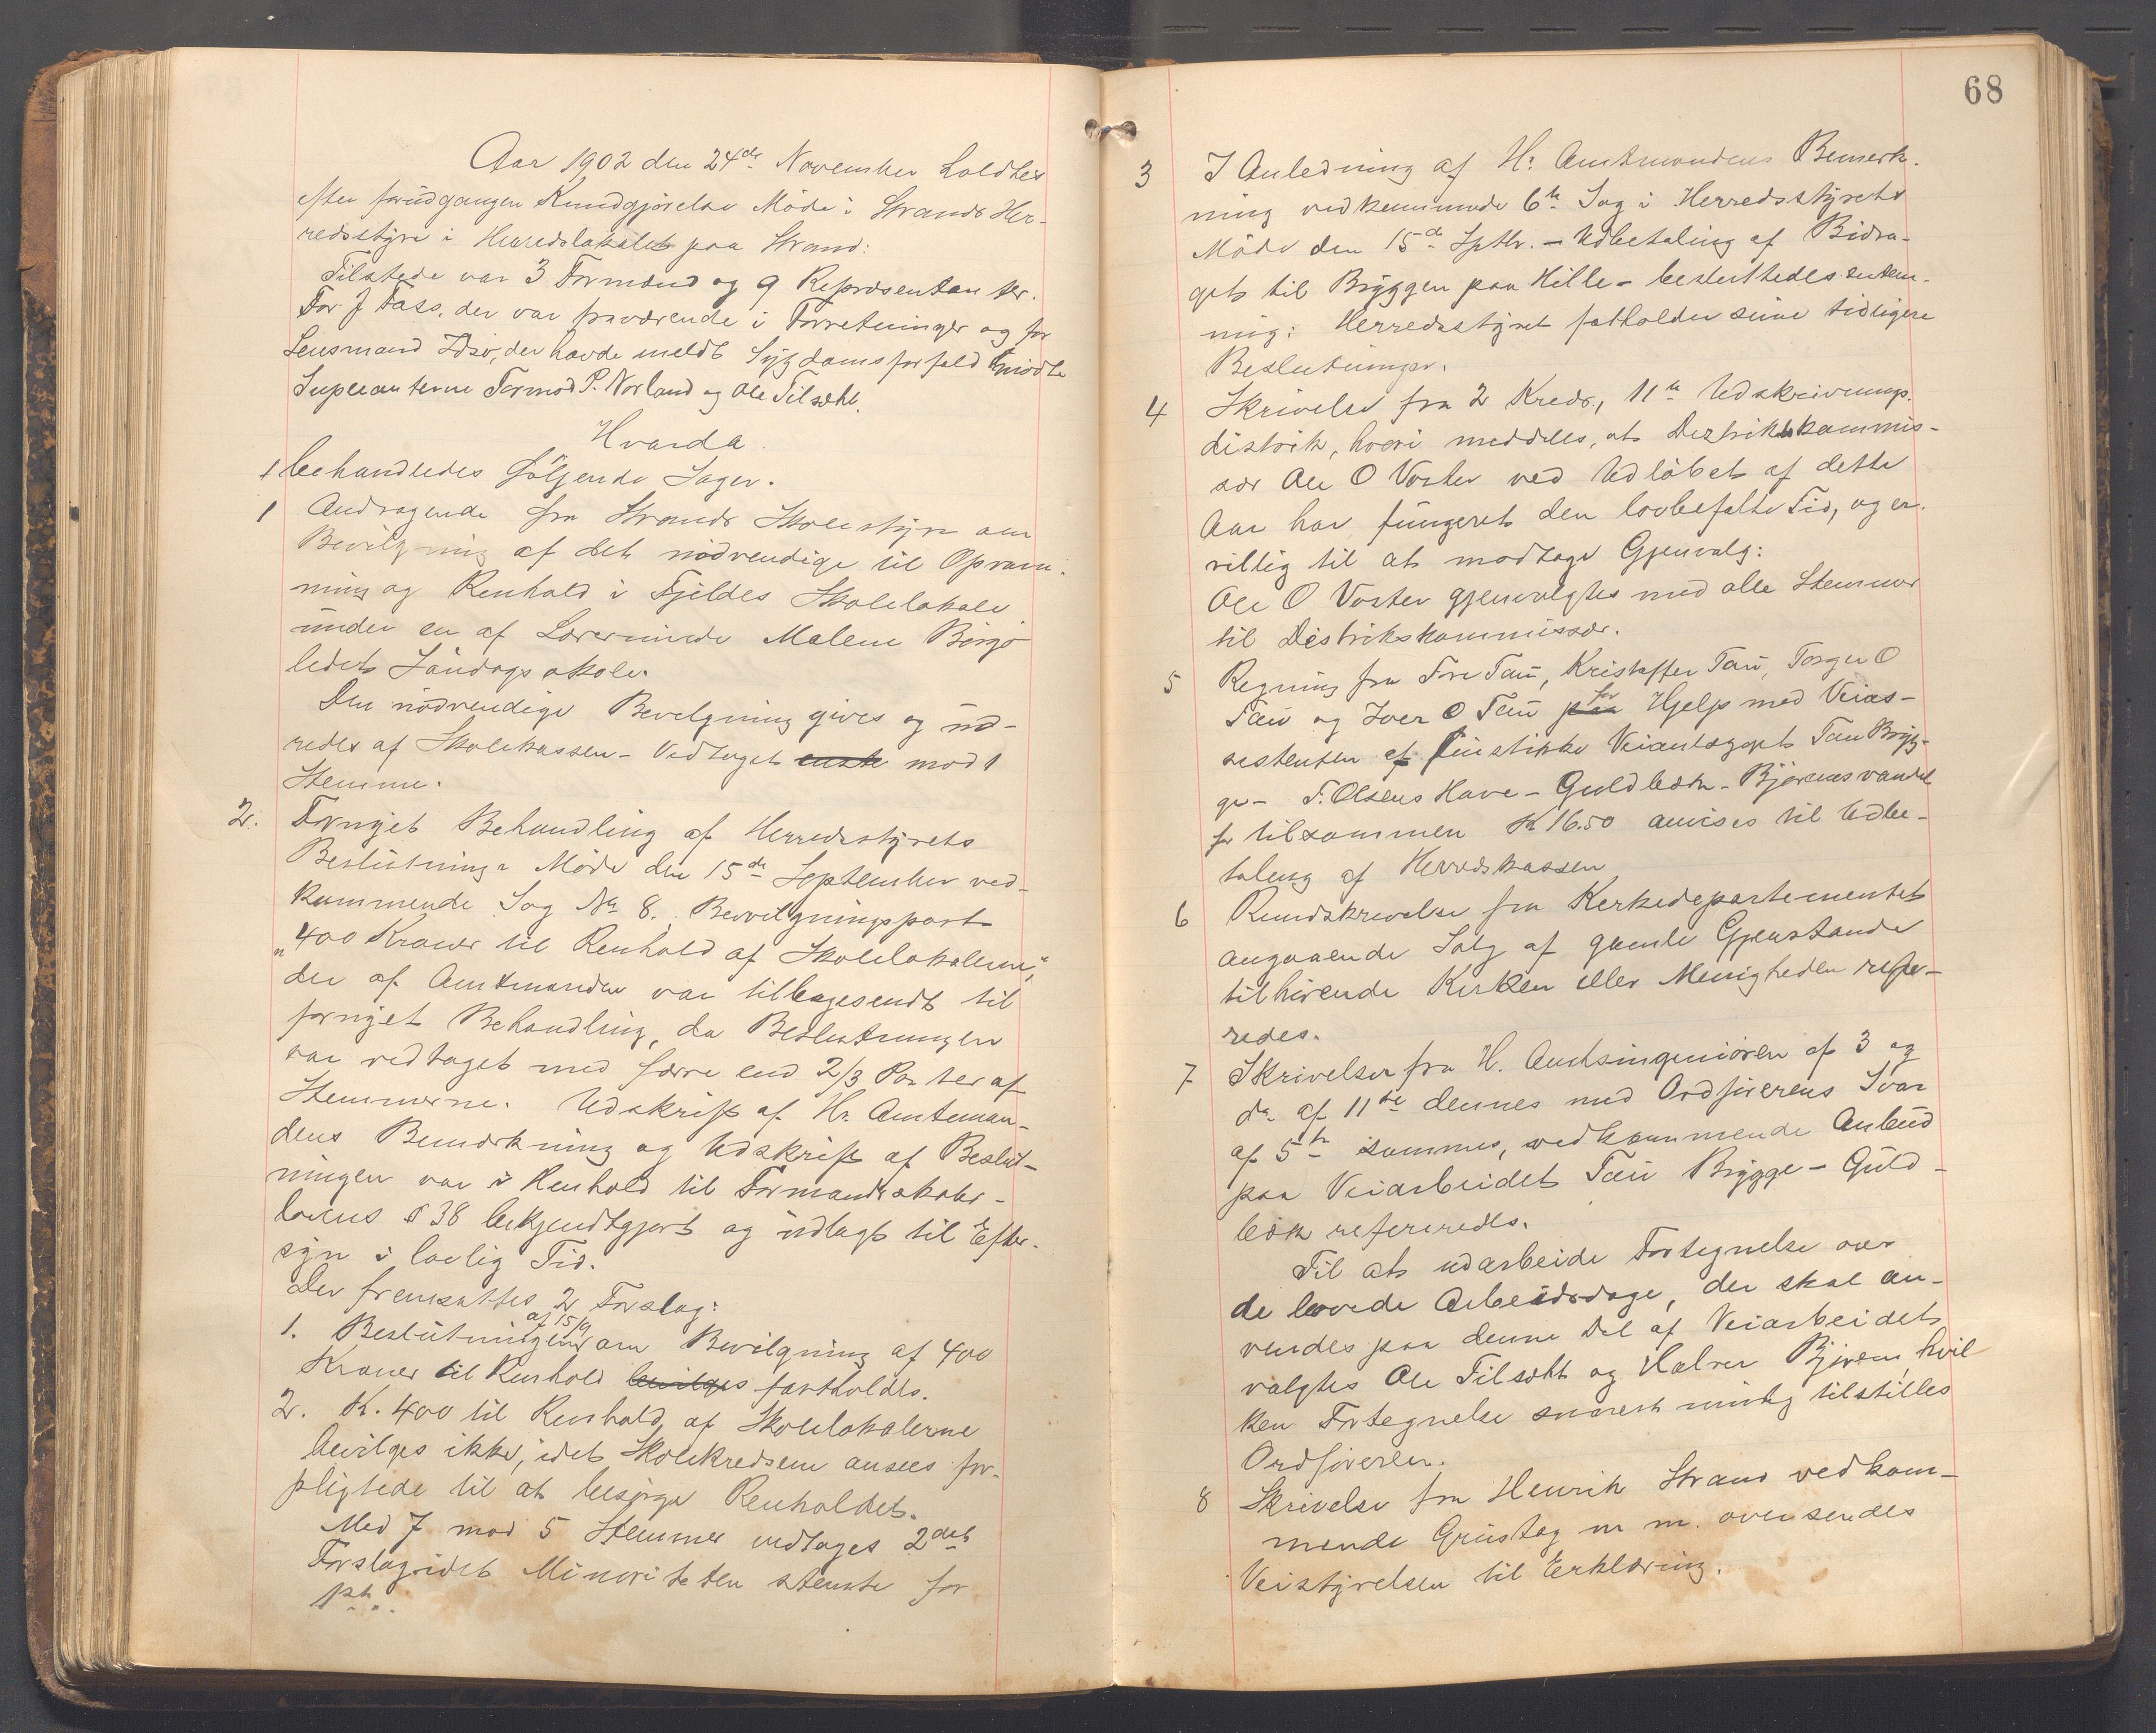 Aar 1902 den 24de November holdtes
efter forudgangen Kundgjørelse Møde i Strands Her-
redsstyre i Herredslokalet paa Strand:
Tilstede var 3 Formænd og 9 Repræsentanter.
For J Fass, der var fraværende i Forretninger og for
Lensmand Idsø, der havde meldt Sygdomsforfald mødte
Supleanterne Tormod P. Norland og Ole Tilseht.
Hvorda
behandledes følgende Sager.
1 Andragende fra Strands Skolestyre om
Bevilgning af det nødvendige til Opvarm-
ning og Renhold i Fjeldes Skolelokale
under en af Lærerinde Malene Börgø
ledet Søndagsskole.
Den nødvendige Bevilgning gives og ud-
redes af Skolekassen - Vedtaget mod 1
Stemme.
2. Fornyet Behandling af Herredsstyrets
Beslutning i Møde den 15de September ved-
kommende Sag No 8. Bevilgningspost
"400 Kroner til Renhold af Skolelokalerne",
der af Amtmanden var tilbagesendt til
fornyet Behandling, da Beslutningen
var vedtaget med færre end 2/3 Parter af
Stemmerne. Udskrift af Hr. Amtman-
dens Bemærkning og Udskrift af Beslut-
ningen var i Henhold til Formandskabs-
lovens § 38 bekjendtgjort og udlagt til Efter-
syn i lovlig Tid.
Der fremsattes 2 Forslag:
1. Beslutningen af 15/9 om Bevilgning af 400
Kroner til Renhold bevilges fastholdes.
2. K. 400 til Renhold af Skolelokalerne
bevilges ikke, idet Skolekredsene ansees for-
pligtede til at besørge Renholdet.
Med 7 mod 5 Stemmer vedtages 2det
Forslag idet Minoriteten stemte for
1ste.
68
3 I Anledning af Hr. Amtmandens Bemerk-
ning vedkommende 6te Sag i Herredsstyrets
Møde den 15de Septbr. - Udbetaling af Bidra-
get til Bryggen paa Hille - besluttedes enstem-
mig: Herredsstyret fastholder sine tidligere
Beslutninger.
4 Skrivelse fra 2 Kreds, 11te Udskrivnings-
distrik, hvori meddeles, at Destrikskommis-
sær Ole O Voster ved Udløbet af dette
Aar har fungeret den lovbefalte Tid, og er
villig til at modtage Gjenvalg:
Ole O Voster gjenvalgtes med alle Stemmer
til Distrikskommissær.
5 Regning fra Tore Tau, Kristoffer Tau, Torger O
Tau og Iver O Tau paa for Hjelp med Veias-
sistenten af Veianlægget Tau Bryg-
ge - T. Olsens Have - Guldberk - Bjørensvandet
for tilsammen K 16.50 anvises til Udbe-
taling af Herredskassen
6 Rundskrivelse fra Kerkedepartementet
angaaende Salg af gamle Gjenstande
tilhørende Kirken eller Menigheden refe-
redes.
7 Skrivelser fra H. Amtsingeniøren af 3 og
do af 11te dennes med Ordførerens Svar
af 5te sammes, vedkommende Anbud
paa Veiarbeidet Tau Brygge - Guld-
berk refereredes.
Til at udarbeide Fortegnelse over
de lovede Arbeidsdage, der skal an-
vendes paa denne Del af Veiarbeidet,
valgtes Ole Tilseht og Halvor Bjøren, hvil
ken Fortegnelse snarest mulig tilstilles
Ordføreren.
8 Skrivelse fra Henrik Strand vedkom-
mende Grustag m m. oversendes
Veistyrelsen til Erklæring.